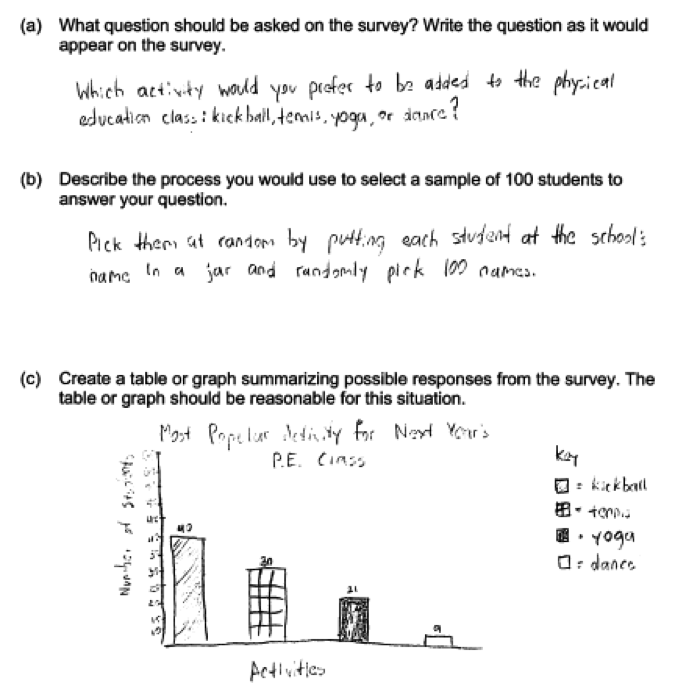 (a) What question should be asked on the survey? Write the question as it would
appear on the survey.
Which activity would you prefer to be added to the physical
education class: kickball, tennis, yoga, or dance?
(b) Describe the process you would use to select a sample of 100 students to
answer your question.
Pick them at random by putting each student at the school's
name in a jar and randomly pick 100 names.
(c) Create a table or graph summarizing possible responses from the survey. The
table or graph should be reasonable for this situation.
Most Popular Activity for Next Year's
P.E. Class
key
= kickball
= tennis
= yoga
= dance
Number of Students
40
30
21
9
Activities